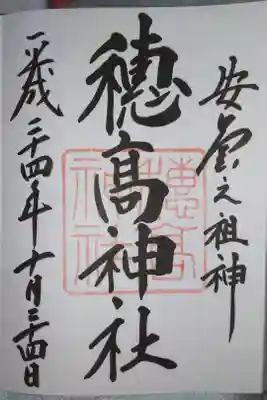 安曇之祖神
穂高神社
平成二十四年十月二十四日
穗高神社